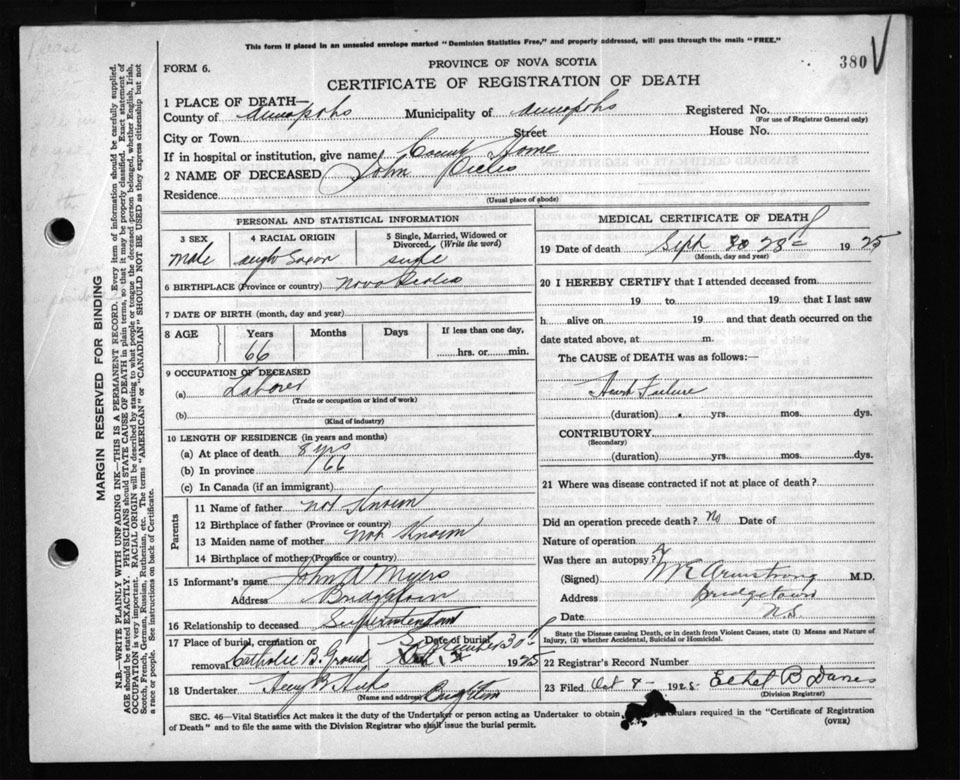 This form if placed in an unsealed envelope marked "Dominion Statistics Free," and properly addressed, will pass through the mails "FREE."
380
PROVINCE OF NOVA SCOTIA
FORM 6.
CERTIFICATE OF REGISTRATION OF DEATH
1 PLACE OF DEATH—
County of Annapolis Municipality of Annapolis Registered No.
(For use of Registrar General only)
City or Town Street House No.
If in hospital or institution, give name County Home
2 NAME OF DECEASED John
Residence
(Usual place of abode)
PERSONAL AND STATISTICAL INFORMATION
3 SEX 4 RACIAL ORIGIN 5 Single, Married, Widowed or Divorced. (Write the word)
Male anglo Saxon single
6 BIRTHPLACE (Province or country) Nova Scotia
7 DATE OF BIRTH (month, day and year)
8 AGE Years Months Days If less than one day,
66 hrs. or min.
9 OCCUPATION OF DECEASED
(a) Laborer
(Trade or occupation or kind of work)
(b)
(Kind of industry)
10 LENGTH OF RESIDENCE (in years and months)
(a) At place of death 8 yrs
(b) In province 66
(c) In Canada (if an immigrant)
Parents
11 Name of father not Known
12 Birthplace of father (Province or country)
13 Maiden name of mother not Known
14 Birthplace of mother (Province or country)
15 Informant's name John Myers
Address Bridgetown
16 Relationship to deceased Superintendant
17 Place of burial, cremation or Date of burial
removal Catholic B. Ground 30th 1925
18 Undertaker
(Name and address)
MEDICAL CERTIFICATE OF DEATH
19 Date of death Sept 28 1925
(Month, day and year)
20 I HEREBY CERTIFY that I attended deceased from
19 to 19 that I last saw
h alive on 19 and that death occurred on the
date stated above, at m.
The CAUSE of DEATH was as follows:—
Heart Failure
(duration) yrs. mos. dys.
CONTRIBUTORY
(Secondary)
(duration) yrs. mos. dys.
21 Where was disease contracted if not at place of death?
Did an operation precede death? No Date of
Nature of operation
Was there an autopsy?
(Signed) Armstrong M.D.
Address Bridgetown
Date N.S.
State the Disease causing Death, or in death from Violent Causes, state (1) Means and Nature of Injury, (2) whether Accidental, Suicidal or Homicidal.
22 Registrar's Record Number
23 Filed Oct 4 - 1925 Ethel B
(Division Registrar)
SEC. 46—Vital Statistics Act makes it the duty of the Undertaker or person acting as Undertaker to obtain particulars required in the "Certificate of Registration
of Death" and to file the same with the Division Registrar who shall issue the burial permit. (OVER)
MARGIN RESERVED FOR BINDING
N.B.—WRITE PLAINLY WITH UNFADING INK—THIS IS A PERMANENT RECORD. Every item of information should be carefully supplied.
AGE should be stated EXACTLY. PHYSICIANS should STATE CAUSE OF DEATH in plain terms, so that it may be properly classified. Exact statement of
OCCUPATION is very important. RACIAL ORIGIN will be described by stating to what people or tongue the deceased person belonged, whether English, Irish,
Scotch, French, German, Russian, Ruthenian, etc. The terms "AMERICAN" or "CANADIAN" SHOULD NOT BE USED as they express citizenship but not
a race or people. See instructions on back of Certificate.